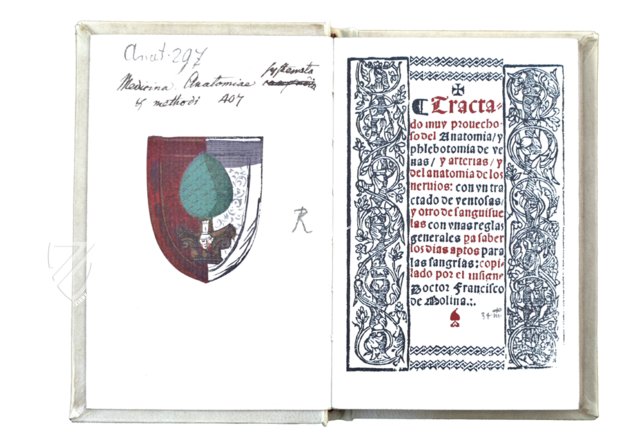 Anat. 297
Medicina Anatomiae systemata
et methodi 407
R
Tracta-
do muy prouecho-
so del Anatomia/y
phlebotomia de ve
nas/ y arterias/ y
del anatomia de los
neruios: con vn tra
ctado de ventosas/
y otro de sanguisue
las con vnas reglas
generales pa saber
los dias aptos para
las sangrias: copi-
lado por el insigne
Doctor Francisco
de Molina.:.